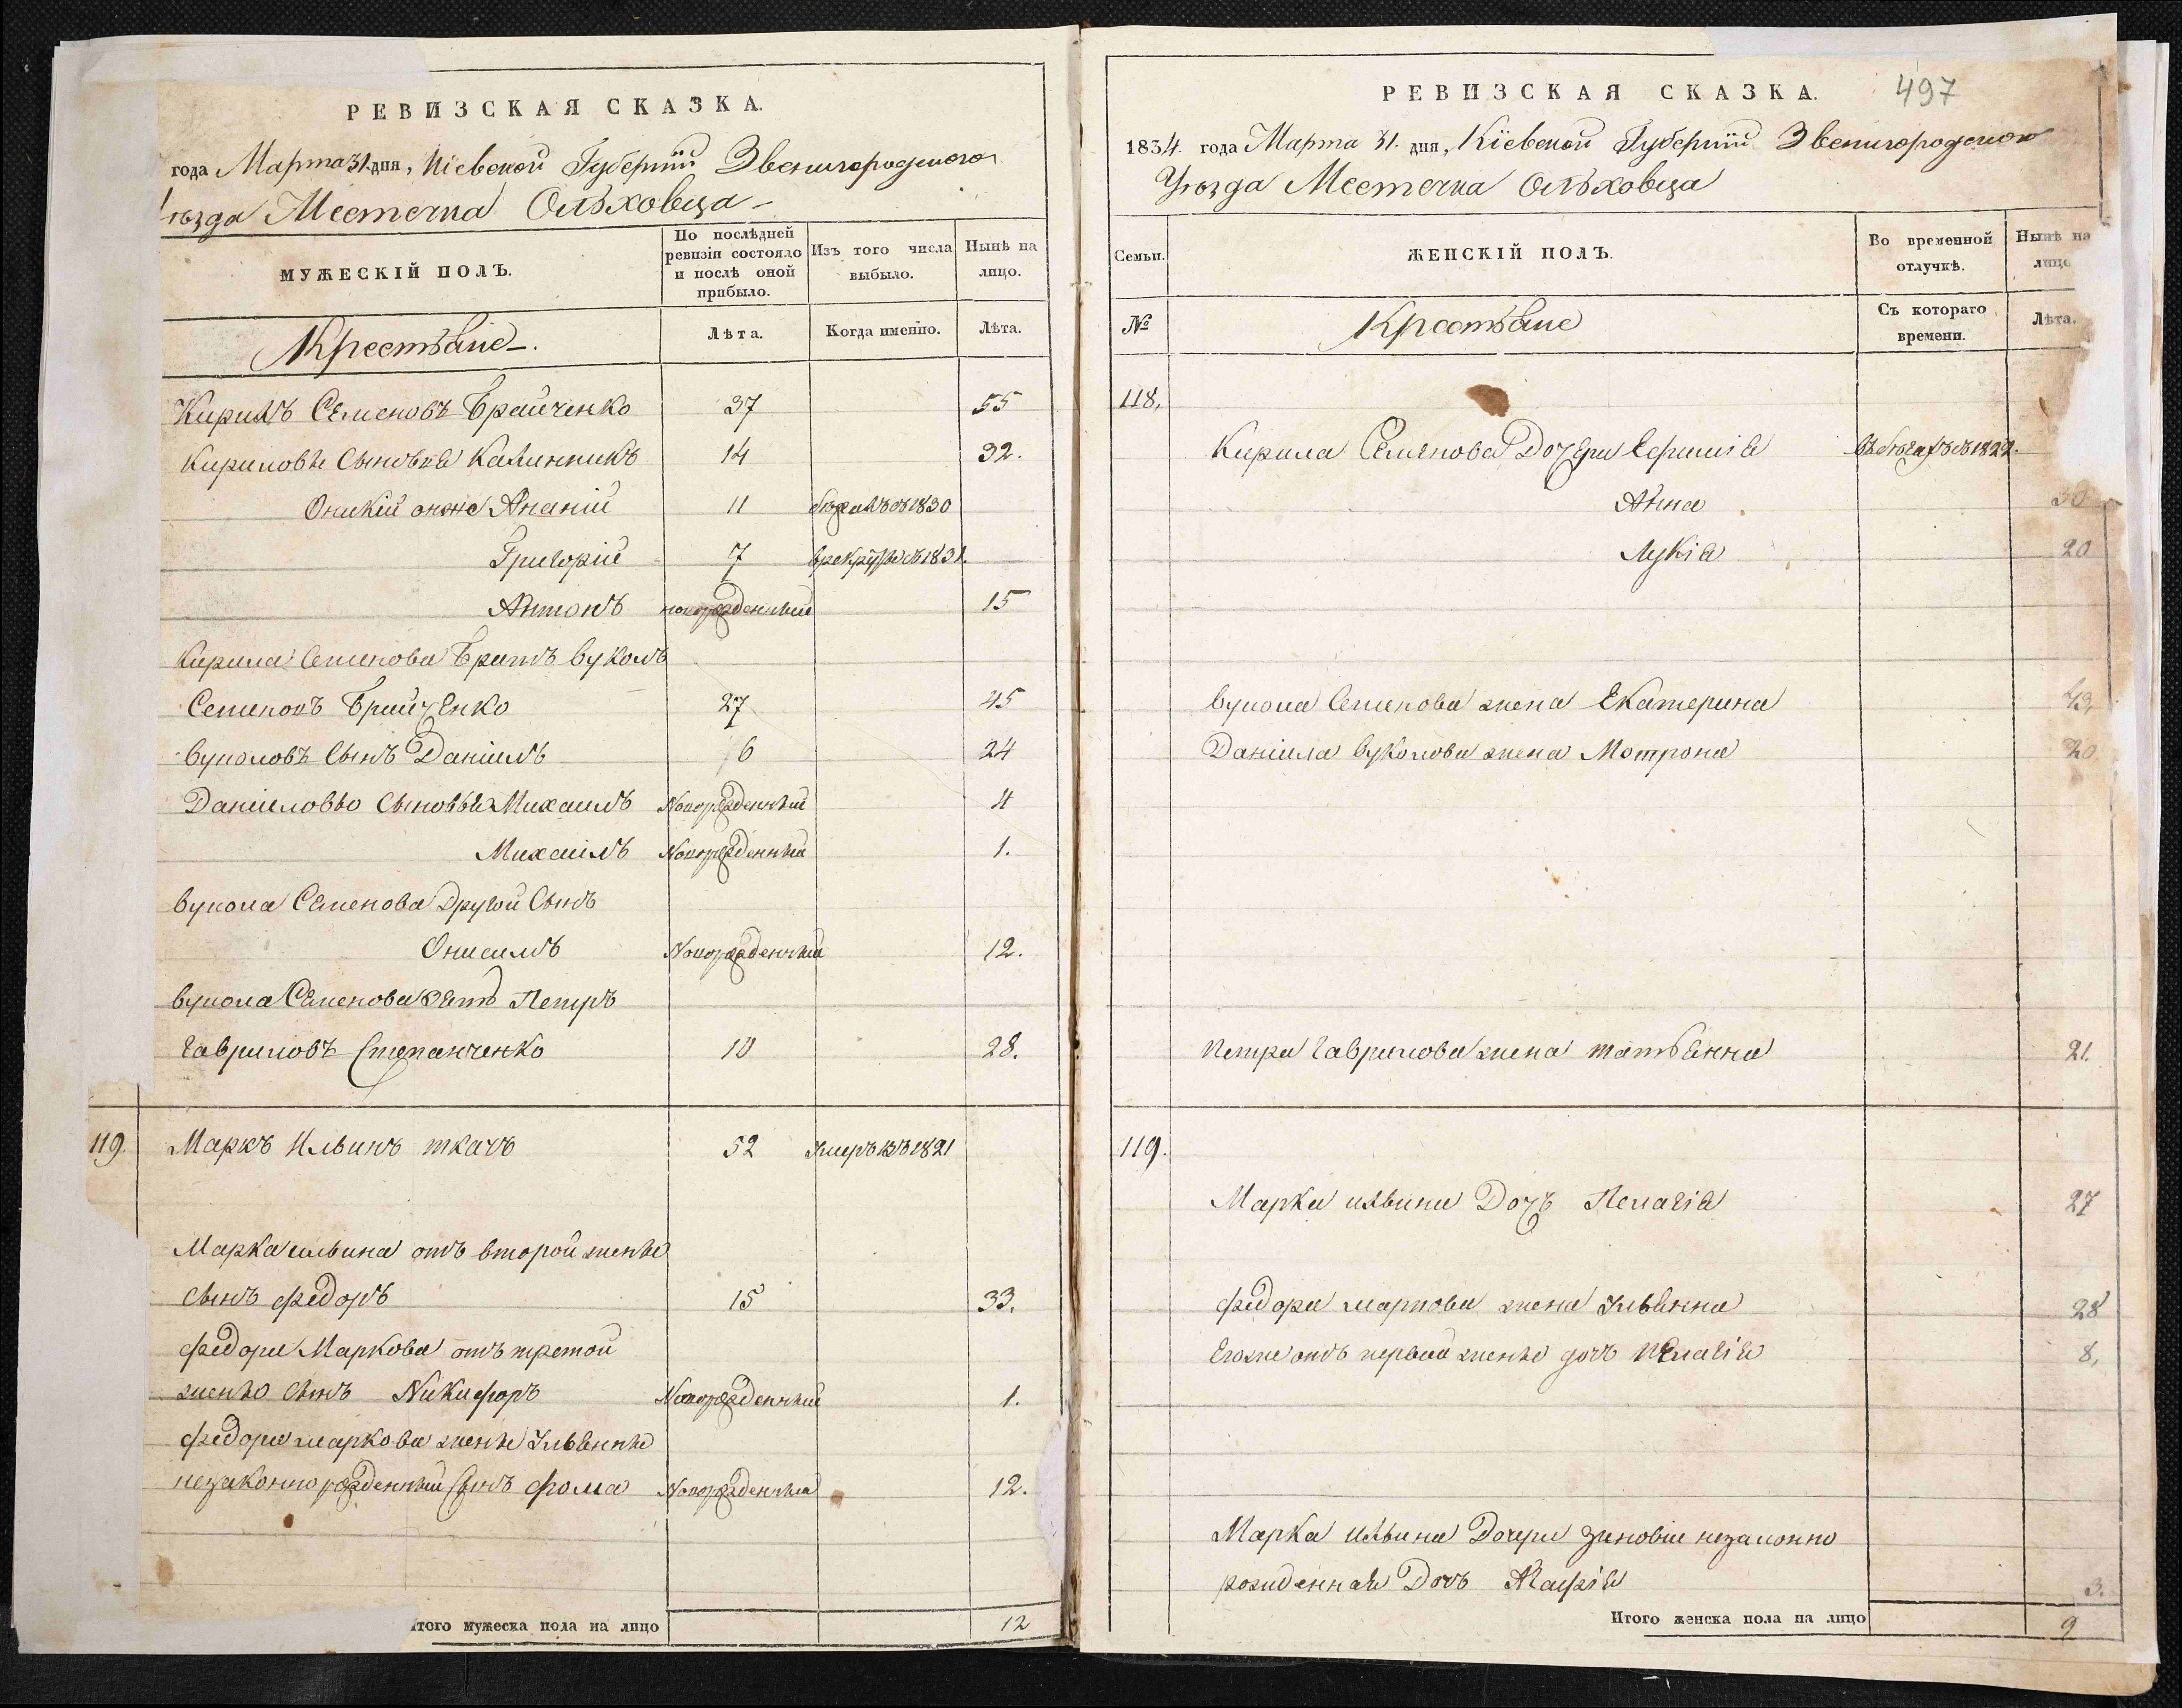 РЕВИЗСКАЯ СКАЗКА.
года Марта 31. дня, Кіевской Губерніи Звенигородскаго
ѣзда Местечка Ольховца
МУЖЕСКІЙ ПОЛЪ.
По послѣдней ревизіи состояло и послѣ оной прибыло.
Изъ того числа выбыло.
Нынѣ на лицо.
Крестьяне.
Лѣта.
Когда именно.
Лѣта.
Кирилъ Семеновъ Брайченко 37 55
Кириловы Сыновья Калинникъ 14 32.
Оникій онже Ананій 11 бежалъ въ 1830
Григорій 7 врекруты въ 1831.
Антонъ новорожденный 15
Кирила Семенова Братъ Вуколъ
Семеновъ Брайченко 27 45
Вуколовъ Сынъ Даніилъ 6 24
Даніиловы Сыновья Михаилъ Новорожденный 4
Михаилъ Новорожденный 1.
Вукола Семенова Другой Сынъ
Онисимъ Новорожденный 12.
Вукола Семенова Зять Петръ
Гавриловъ Степанченко 10 28.
119. Маркъ Ильинъ ткачъ 52 Умеръ въ 1821
Марка ильина отъ второй жены
сынъ федоръ 15 33.
федора Маркова отъ третой
жены сынъ Никифоръ Новорожденный 1.
федора маркова жены Ульянны
незаконно рожденный Сынъ фома Новорожденный 12.
того мужеска пола на лицо 12
497
РЕВИЗСКАЯ СКАЗКА.
1834 года Марта 31. дня, Кіевской Губерніи Звенигородского
Уезда Местечка Ольховца
Семьи.
ЖЕНСКІЙ ПОЛЪ.
Во временной отлучкѣ.
Нынѣ на лицо
№
Крестьяне
Съ котораго времени.
Лѣта.
118.
Кирила Семенова Дочери въ бегахъ съ 1822.
Анна 30
Лукія 20
Вукола Семенова жена Екатерина 43,
Даніила Вуколова жена Мотрона 20
Петра Гаврилова жена татьянна 21.
119.
Марка ильина Дочь Пелагія 27
федора маркова жена Ульянна 28
Егоже отъ первой жены дочь Пелагія 8,
Марка ильина Дочери зиновіи незаконно
рожденная Дочь Марія 3.
Итого женска пола на лицо 9